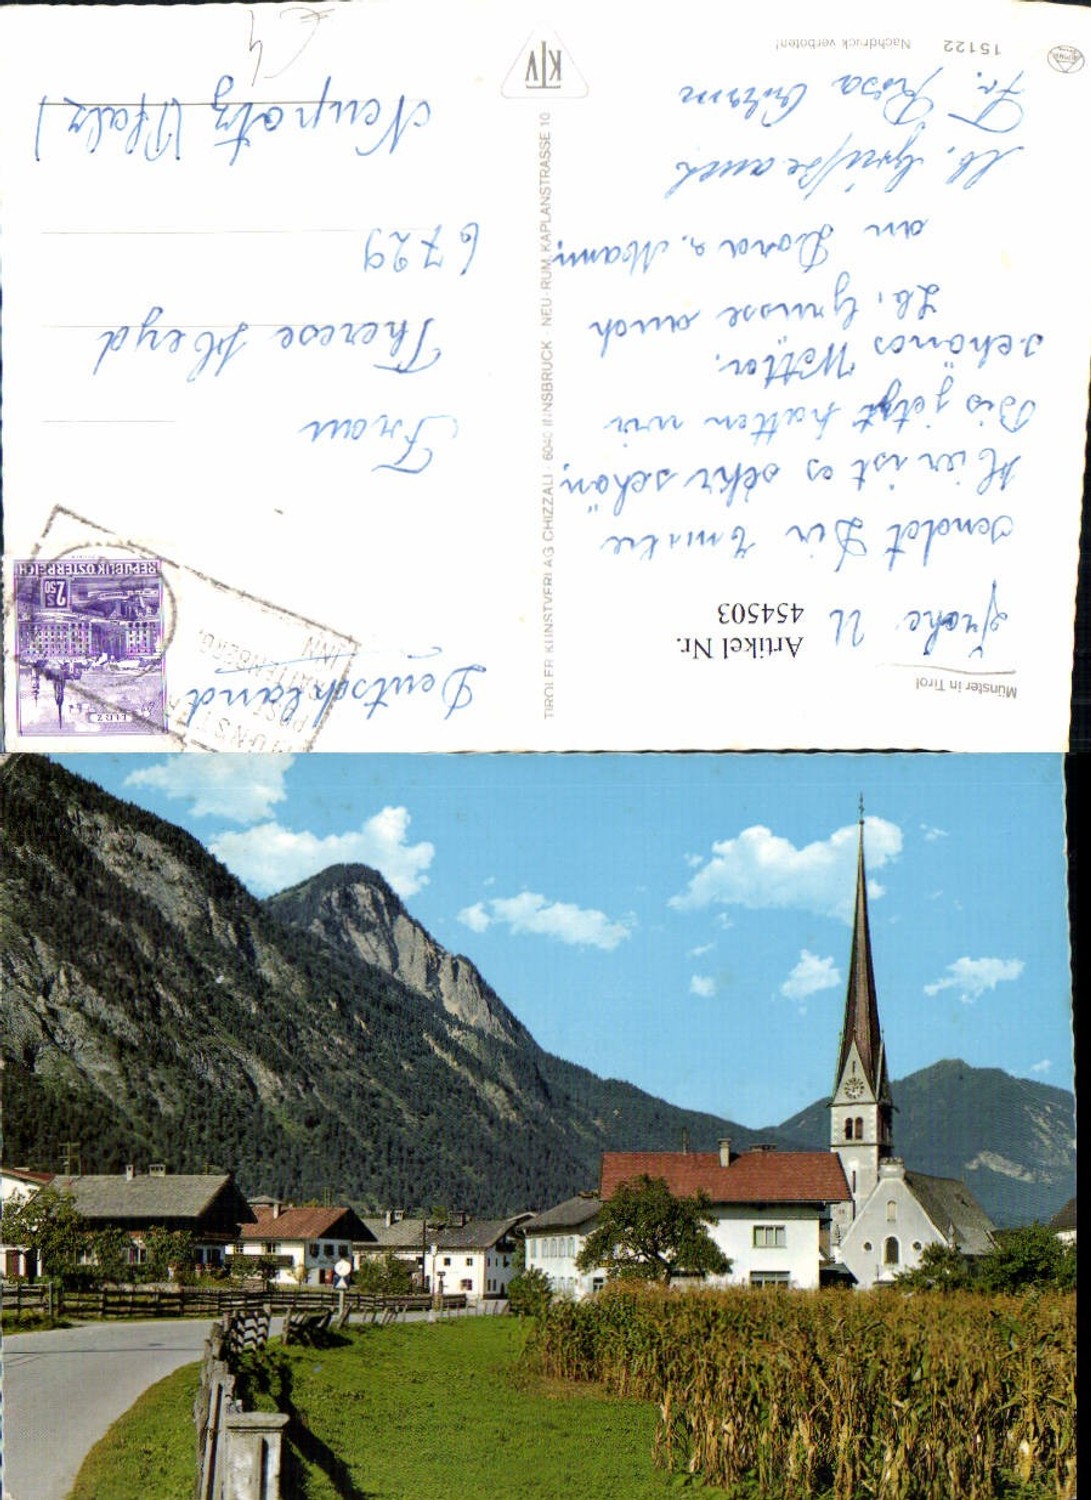 Münster in Tirol
Artikel Nr.
454503
Frohe U
sendet Dir Emilie
Hier ist es sehr schön,
Bis jetzt hatten wir
schönes Wetter.
Lb. Grüsse auch
an Dora u. Mann.
Lb. Grüße auch
Fr. Rosa
15122
Nachdruck verboten!
KTV
TIROLER KUNSTVERLAG CHIZZALI · 6040 INNSBRUCK - NEU-RUM, KAPLANSTRASSE 10
Deutschland
MÜNSTER
POST
INN
LINZ
S 2.50
REPUBLIK ÖSTERREICH
Frau
Therese Heyd
6729
Neupotz (Pfalz)